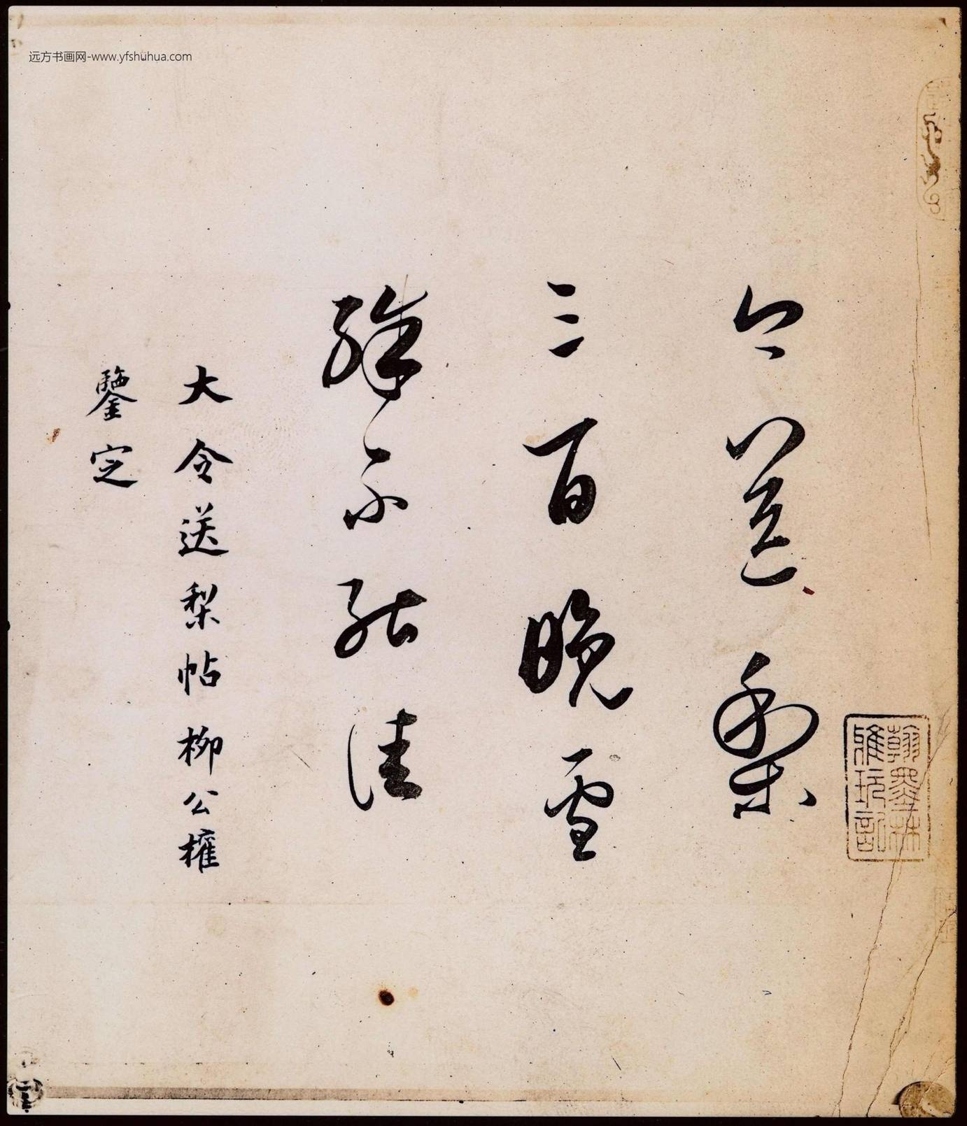 远方书画网-www.yfshuhua.com
今送梨
三百晚雪
殊不能佳
大令送梨帖柳公權
鑒定
翰墨林
雅玩記